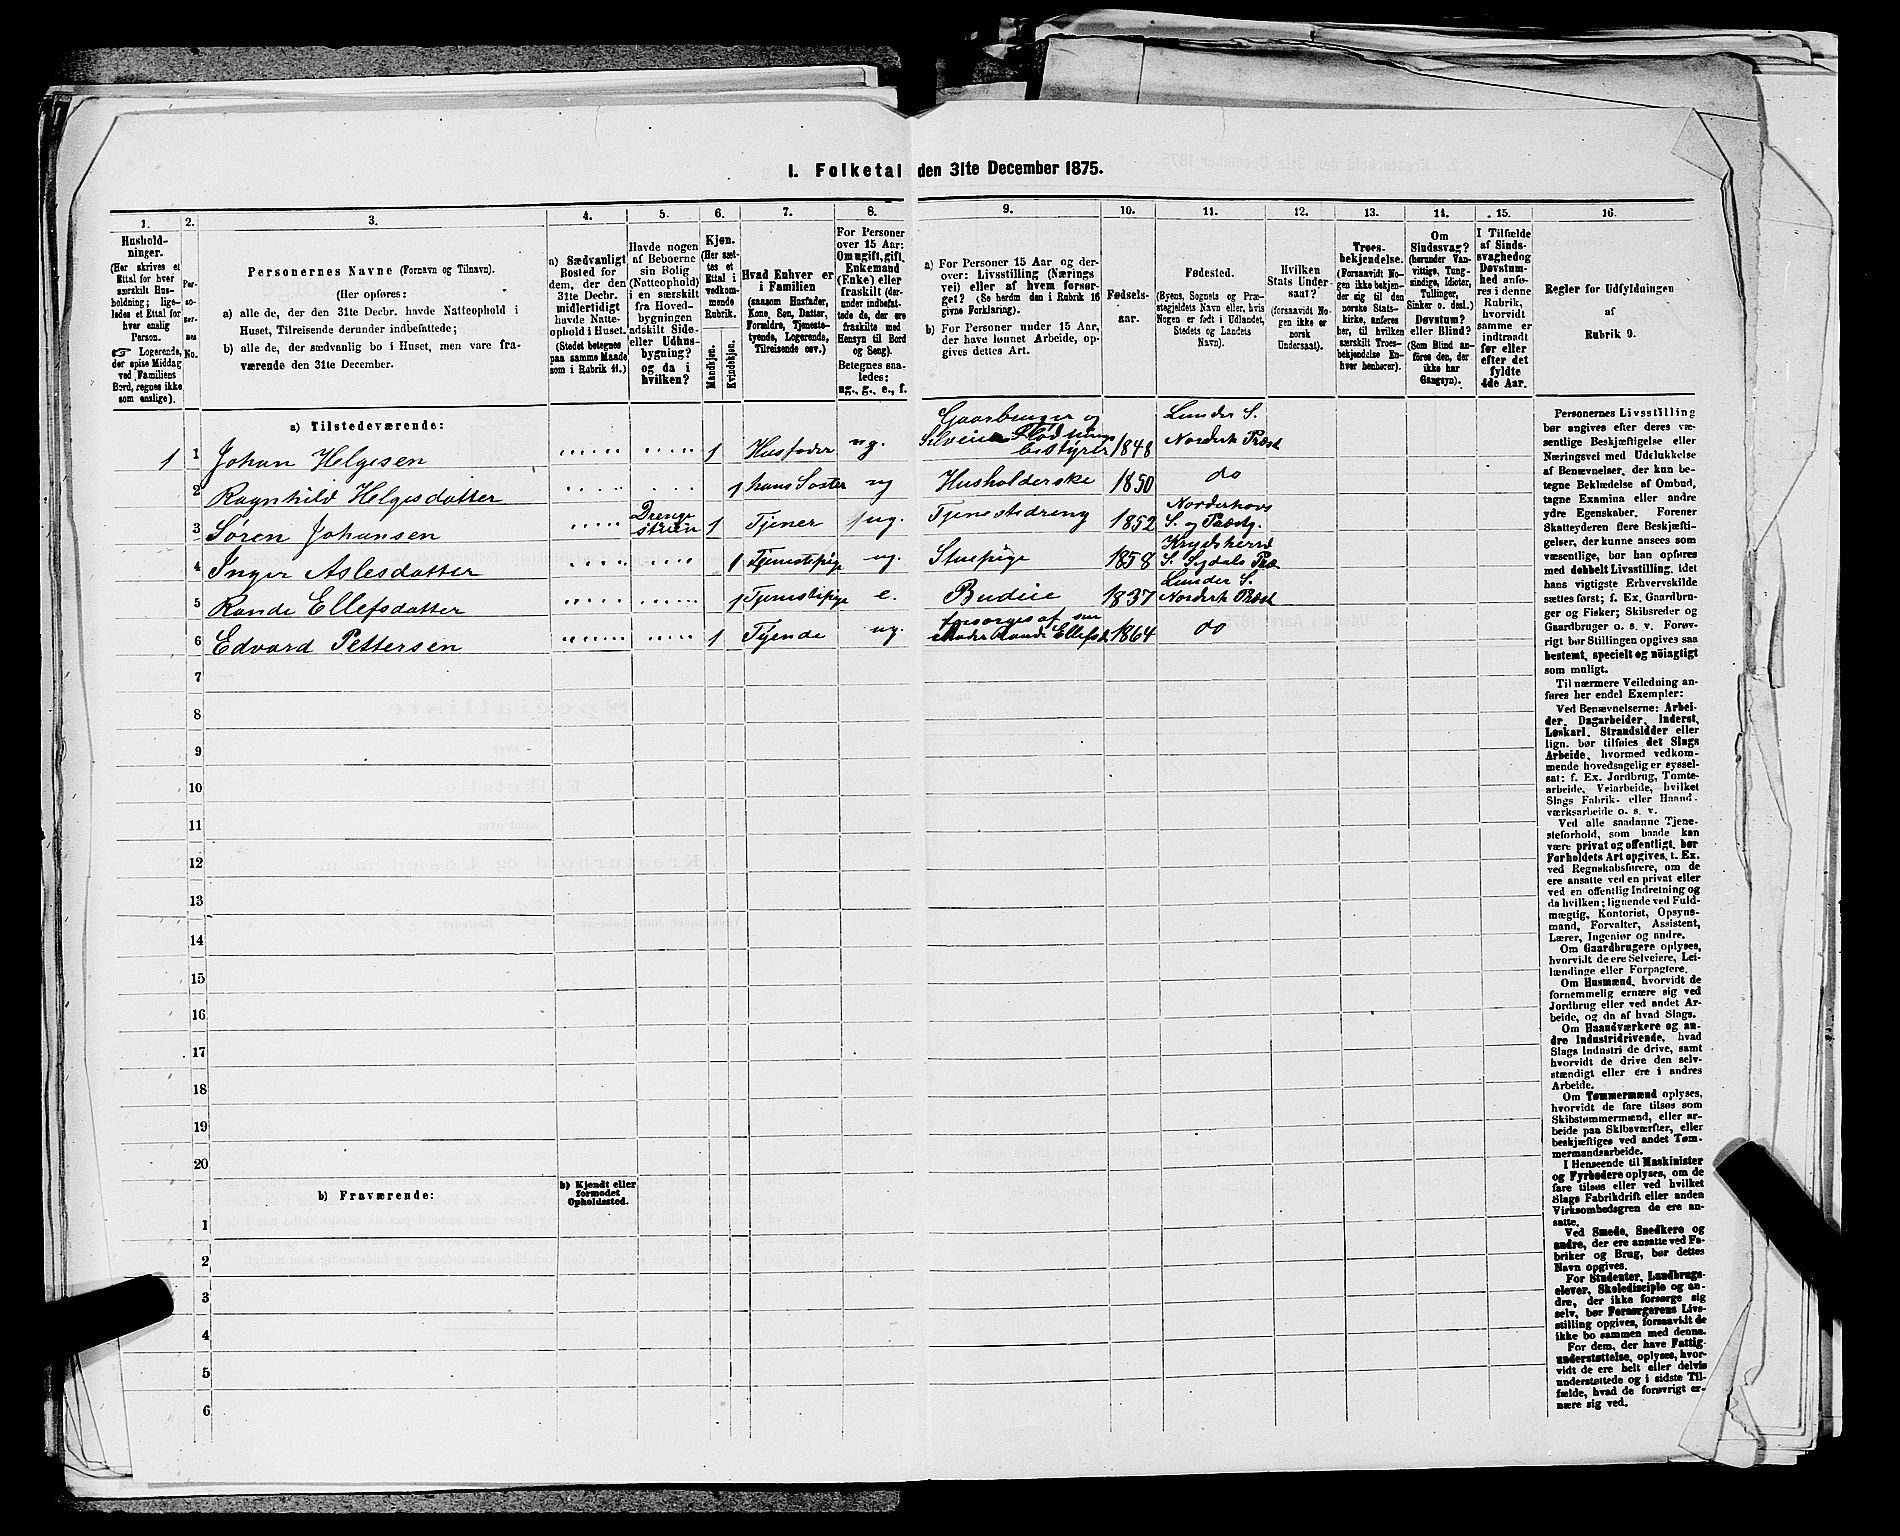 1. Folketal den 31te December 1875.
1.
Hushold-
ninger.
(Her skrives et
Ettal for hver
særskilt Hus-
holdning; lige-
ledes et Ettal for
hver enslig
Person.
☞ Logerende,
der spise Middag
ved Familiens
Bord, regnes ikke
som enslige).
2.
Per-
so-
ner-
nes
No.
3.
Personernes Navne (Fornavn og Tilnavn).
(Her opføres:
a) alle de, der den 31te Decbr. havde Natteophold i
Huset, Tilreisende derunder indbefattede;
b) alle de, der sædvanlig bo i Huset, men vare fra-
værende den 31te December.
4.
a) Sædvanligt
Bosted for
dem, der den
31te Decbr.
midlertidigt
havde Natte-
ophold i Huset.
(Stedet betegnes
paa samme Maade
som i Rubrik 11.)
5.
Havde nogen
af Beboerne
sin Bolig
(Natteophold)
i en særskilt
fra Hoved-
bygningen
adskilt Side-
eller Udhus-
bygning?
og da i
hvilken?
6.
Kjøn.
(Her sæt-
tes et
Ettal i
vedkom-
mende
Rubrik.
Mandkjøn.
Kvindekjøn.
7.
Hvad Enhver er
i Familien
(saasom Husfader,
Kone, Søn, Datter,
Forældre, Tjeneste-
tyende, Logerende,
Tilreisende osv.)
8.
For Personer
over 15 Aar:
Om ugift, gift,
Enkemand
(Enke) eller
fraskilt (der-
under indbefat-
tede de, der ere
fraskilte med
Hensyn til Bord
og Seng).
Betegnes saa-
ledes:
ug., g., e., f.
9.
a) For Personer 15 Aar og der-
over: Livsstilling (Nærings
vei) eller af hvem forsør-
get? (Se herom den i Rubrik 16
givne Forklaring).
b) For Personer under 15 Aar,
der have lønnet Arbeide, op-
gives dettes Art.
10.
Fødsels-
aar.
11.
Fødested.
(Byens, Sognets og Præ-
stegjeldets Navn eller, hvis
Nogen er født i Udlandet,
Stedets og Landets
Navn).
12.
Hvilken
Stats Under-
saat?
(forsaavidt No-
gen ikke er
norsk
Undersaat).
13.
Troes-
bekjendelse.
(Forsaavidt No-
gen ikke bekjen-
der sig til den
norske Stats-
kirke, anføres
her, til hvilken
særskilt Troes-
bekjendelse En-
hver henhører).
14.
Om
Sindssvag?
(herunder Van-
vittige, Tung-
sindige, Idioter,
Tullinger,
Sinker o. desl.)
Døvstum?
eller Blind?
(Som Blind an-
føres den, der
ikke har
Gangsyn).
15.
I Tilfælde
af Sinds-
svaghed og
Døvstum-
hed anfø-
res i denne
Rubrik,
hvorvidt
samme er
indtraadt
før eller
efter det
fyldte
4de Aar.
16.
Regler for Udfyldningen
af
Rubrik 9.
a) Tilstedeværende:
1 1 Johan Helgesen 1 Husfader ug. Gaardbruger og Selveier Flødningsbestyrer 1848 Lunder S. Norderh Præst
2 Ragnhild Helgesdatter 1 hans Søster ug Husholderske 1850 do
3 Søren Johansen Drengestuen 1 Tjener ug. Tjenestedreng 1852 Norderhovs S. og Præstg.
4 Inger Aslesdatter 1 Tjenestepige ug. Stuepige 1858 Krydsherred S. Sigdals Præ
5 Rande Ellefsdatter 1 Tjenestepige e. Budeie 1837 Lunder S. Norderh Præst
6 Edvard Pettersen 1 Tyende ug. forsørges af sin Moder Rande Ellefsd. 1864 do
7
8
9
10
11
12
13
14
15
16
17
18
19
20
b) Fraværende:
b) Kjendt eller
formodet
Opholdssted.
1
2
3
4
5
6
Personernes Livsstilling
bør angives efter deres væ-
sentlige Beskjæftigelse eller
Næringsvei med Udelukkelse
af Benævnelser, der kun be-
tegne Beklædelse af Ombud,
tagne Examina eller andre
ydre Egenskaber. Forener
Skatteyderen flere Beskjæfti-
gelser, der kunne ansees som
væsentlige, bør han opføres
med dobbelt Livsstilling, idet
hans vigtigste Erhvervskilde
sættes først; f. Ex. Gaardbru-
ger og Fisker; Skibsreder og
Gaardbruger o. s. v. Forøv-
rigt bør Stillingen opgives saa
bestemt, specielt og nøiagtigt
som muligt.
Til nærmere Veiledning an-
føres her endel Exempler:
Ved Benævnelserne: Arbei-
der, Dagarbeider, Inderst,
Løskarl, Strandsidder eller
lign. bør tilføies det Slags
Arbeide, hvormed vedkom-
mende hovedsagelig er syssel-
sat; f. Ex. Jordbrug, Tomte-
arbeide, Veiarbeide, hvilket
Slags Fabrik- eller Haand-
værksarbeide o. s. v.
Ved alle saadanne Tjene-
steforhold, som baade kan
være privat og offentligt, bør
Forholdets Art opgives, t. Ex.
ved Regnskabsførere, om de
ere ansatte ved en privat eller
ved en offentlig Indretning og
da hvilken; lignende ved Fuld-
mægtig, Kontorist, Opsyns-
mand, Forvalter, Assistent,
Lærer, Ingeniør og andre.
Om Gaardbrugere oplyses,
hvorvidt de ere Selveiere, Lei-
lændinge eller Forpagtere.
Om Husmænd, hvorvidt de
fornemmelig ernære sig ved
Jordbrug eller ved andet Ar-
beide, og da af hvad Slags.
Om Haandværkere og an-
dre Industridrivende, hvad
Slags Industri de drive, samt
hvorvidt de drive den selv-
stændigt eller ere i andres
Arbeide.
Om Tømmermænd oplyses,
hvorvidt de fare tilsøs som
Skibstømmermænd, eller ar-
beide paa Skibsværfter, eller
beskjæftiges ved andet Tøm-
mermandsarbeide.
I Henseende til Maskinister
og Fyrbødere oplyses, om de
fare tilsøs eller ved hvilket
Slags Fabrikdrift eller anden
Virksomhedsgren de ere an-
satte.
Ved Smede, Snedkere og
andre, der ere ansatte ved Fa-
briker og Brug, bør dettes
Navn opgives.
For Studenter, Landbrugs-
elever, Skoledisciple og an-
dre, der ikke forsørge sig
selv, bør Forsørgerens Livs-
stilling opgives, forsaavidt de
ikke bo sammen med denne.
For dem, der have Fattig-
understøttelse, oplyses, hvor-
vidt de ere helt eller delvis
understøttede og i sidste Til-
fælde, hvad de forøvrigt er-
nære sig ved.